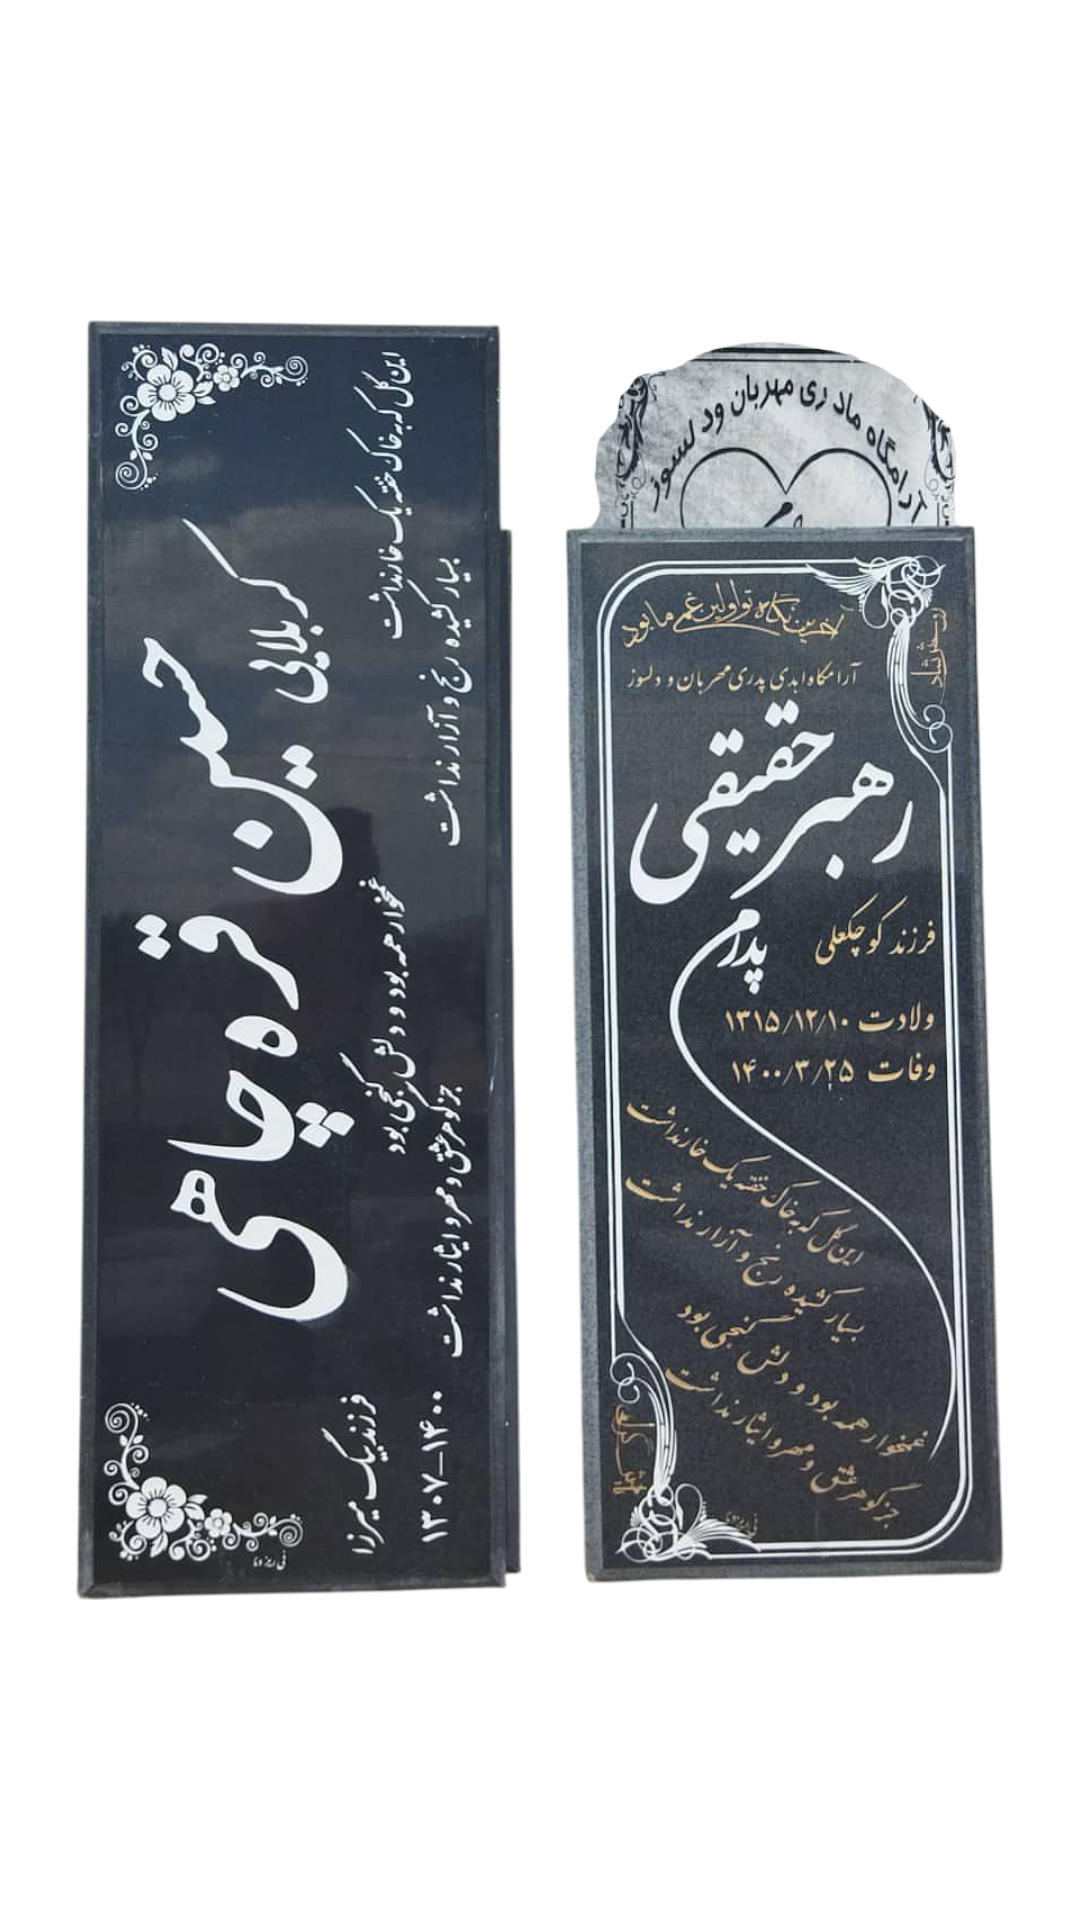 کربلایی
حسین قره چاهی
این گل که به خاک خفته یک خار نداشت
بسیار کشیده رنج و آزار نداشت
غمخوار همه بود و دلش گنجی بود
جز گوهر عشق و مهر و ایثار نداشت
فرزند بیگ میرزا
۱۳۰۷-۱۴۰۰
آرامگاه مادری مهربان ودلسوز
آخرین نگاه تو اولین غم ما بود
آرامگاه ابدی پدری مهربان و دلسوز
رهبر حقیقی
پدرم
فرزند کوچکعلی
ولادت ۱۳۱۵/۱۲/۱۰
وفات ۱۴۰۰/۳/۲۵
این گل که به خاک خفته یک خار نداشت
بسیار کشیده رنج و آزار نداشت
غمخوار همه بود و دلش گنجی بود
جز گوهر عشق و مهر و ایثار نداشت